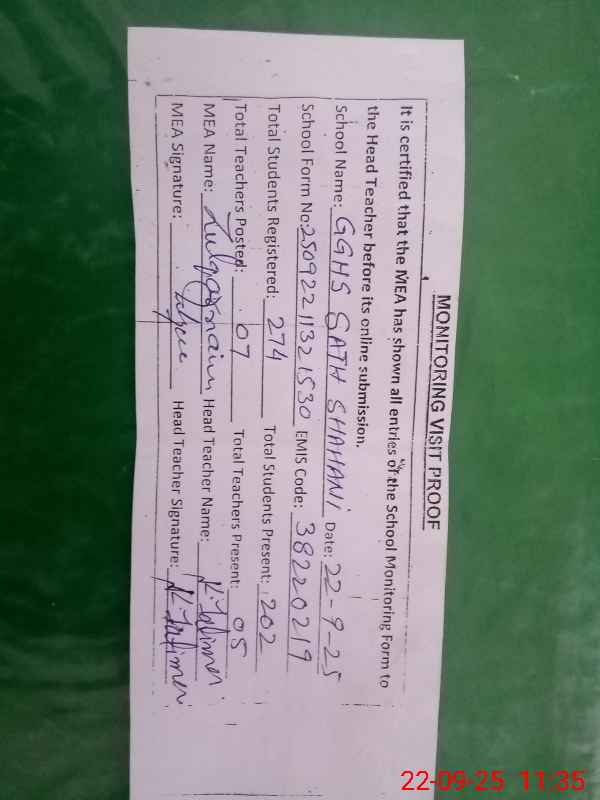 MONITORING VISIT PROOF
It is certified that the MEA has shown all entries of the School Monitoring Form to
the Head Teacher before its online submission.
School Name: GGHS SATH SHAHANI Date: 22-9-25
School Form No: 25092211321530 EMIS Code: 38220219
Total Students Registered: 274 Total Students Present: 202
Total Teachers Posted: 07 Total Teachers Present: 05
MEA Name: Zulqarnain Head Teacher Name:
MEA Signature: Head Teacher Signature:
22-09-25 11:35